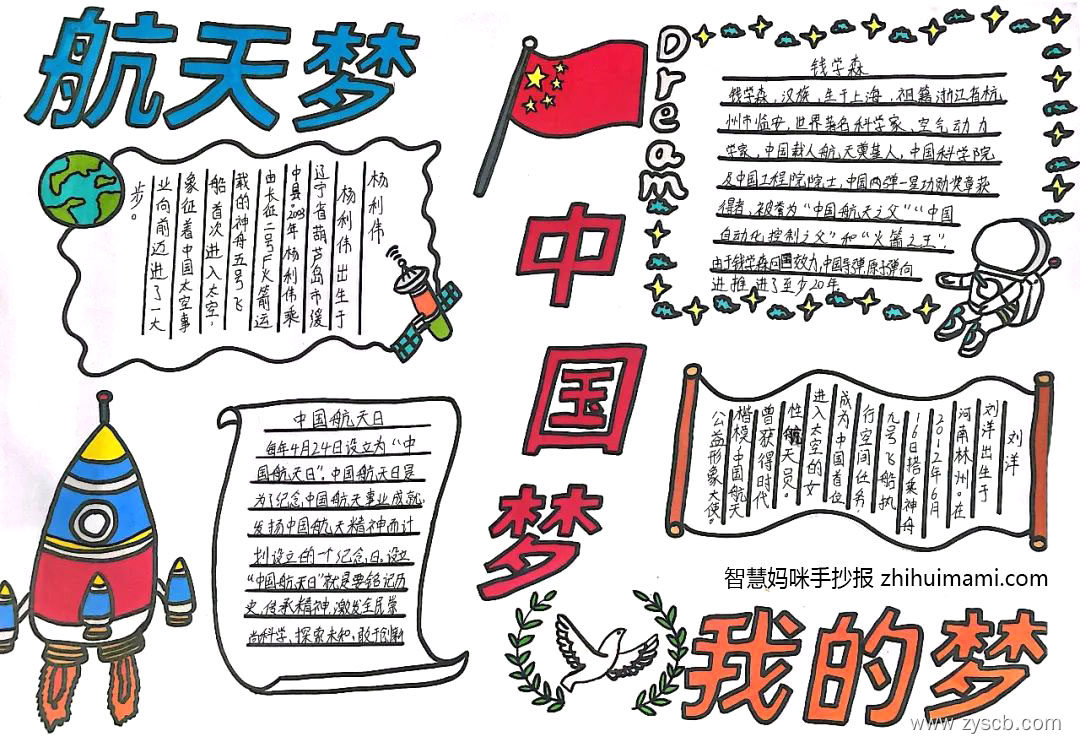 航天梦
杨利伟
杨利伟出生于
辽宁省葫芦岛市绥
中县。2003年杨利伟乘
由长征二号F火箭运
载的神舟五号飞
船首次进入太空，
象征着中国太空事
业向前迈进了一大
步。
Dream
钱学森
钱学森，汉族，生于上海，祖籍浙江省杭
州市临安，世界著名科学家、空气动力
学家，中国载人航天奠基人，中国科学院
及中国工程院院士，中国两弹一星功勋奖章获
得者，被誉为“中国航天之父”“中国
自动化控制之父”和“火箭之王”，
由于钱学森回国效力，中国导弹原子弹向
进推进了至少20年
中国梦
中国航天日
每年4月24日设立为“中
国航天日”。中国航天日是
为了纪念中国航天事业成就，
发扬中国航天精神而计
划设立的一个纪念日，设立
“中国航天日”就是要铭记历
史、传承精神，激发全民崇
尚科学、探索未知、敢于创新
刘洋
刘洋出生于
河南林州。在
2012年6月
16日搭乘神舟
九号飞船执
行空间任务，
成为中国首位
进入太空的女
性航天员。
曾获得时代
楷模、中国航天
公益形象大使。
智慧妈咪手抄报 zhihuimami.com
我的梦
www.zyscb.com